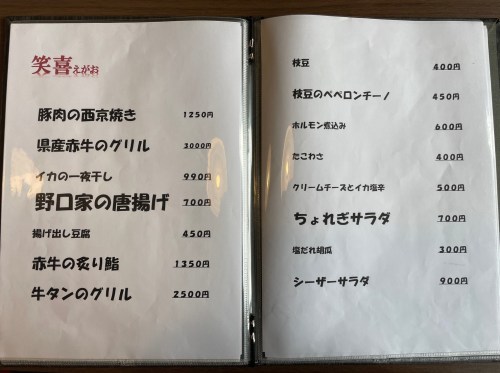 笑喜えがお
豚肉の西京焼き 1250円
県産赤牛のグリル 3000円
イカの一夜干し 990円
野口家の唐揚げ 700円
揚げ出し豆腐 450円
赤牛の炙り鮨 1350円
牛タンのグリル 2500円
枝豆 400円
枝豆のペペロンチーノ 450円
ホルモン煮込み 600円
たこわさ 400円
クリームチーズとイカ塩辛 500円
ちょれぎサラダ 700円
塩だれ胡瓜 300円
シーザーサラダ 900円